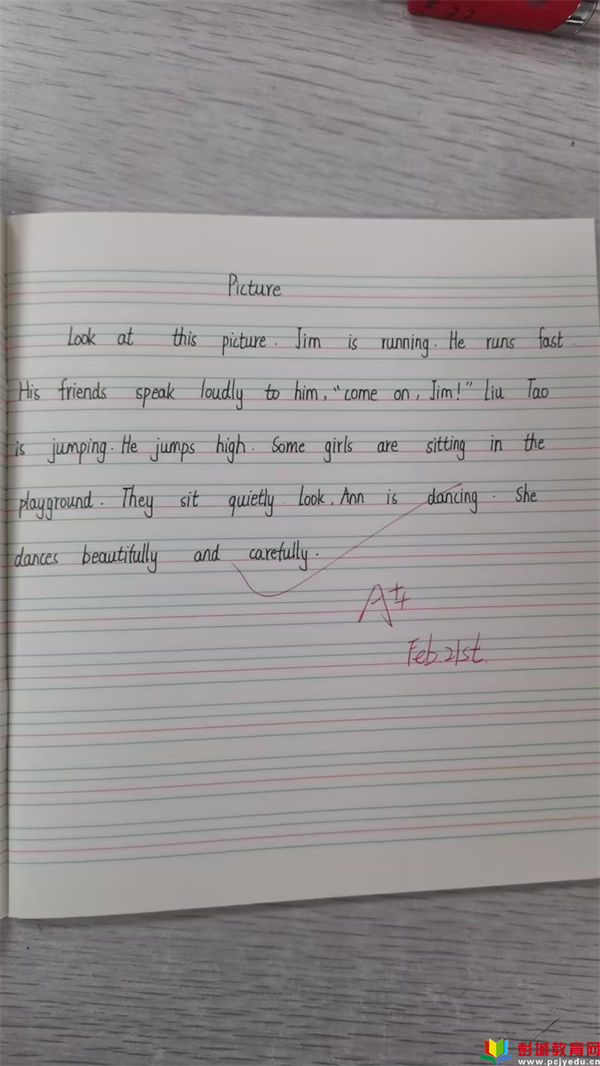 Picture
Look at this picture. Jim is running. He runs fast.
His friends speak loudly to him, "come on, Jim!" Liu Tao
is jumping. He jumps high. Some girls are sitting in the
playground. They sit quietly. Look, Ann is dancing. She
dances beautifully and carefully.
A++
Feb. 21st.
彭城教育网
www.pcjyedu.cn